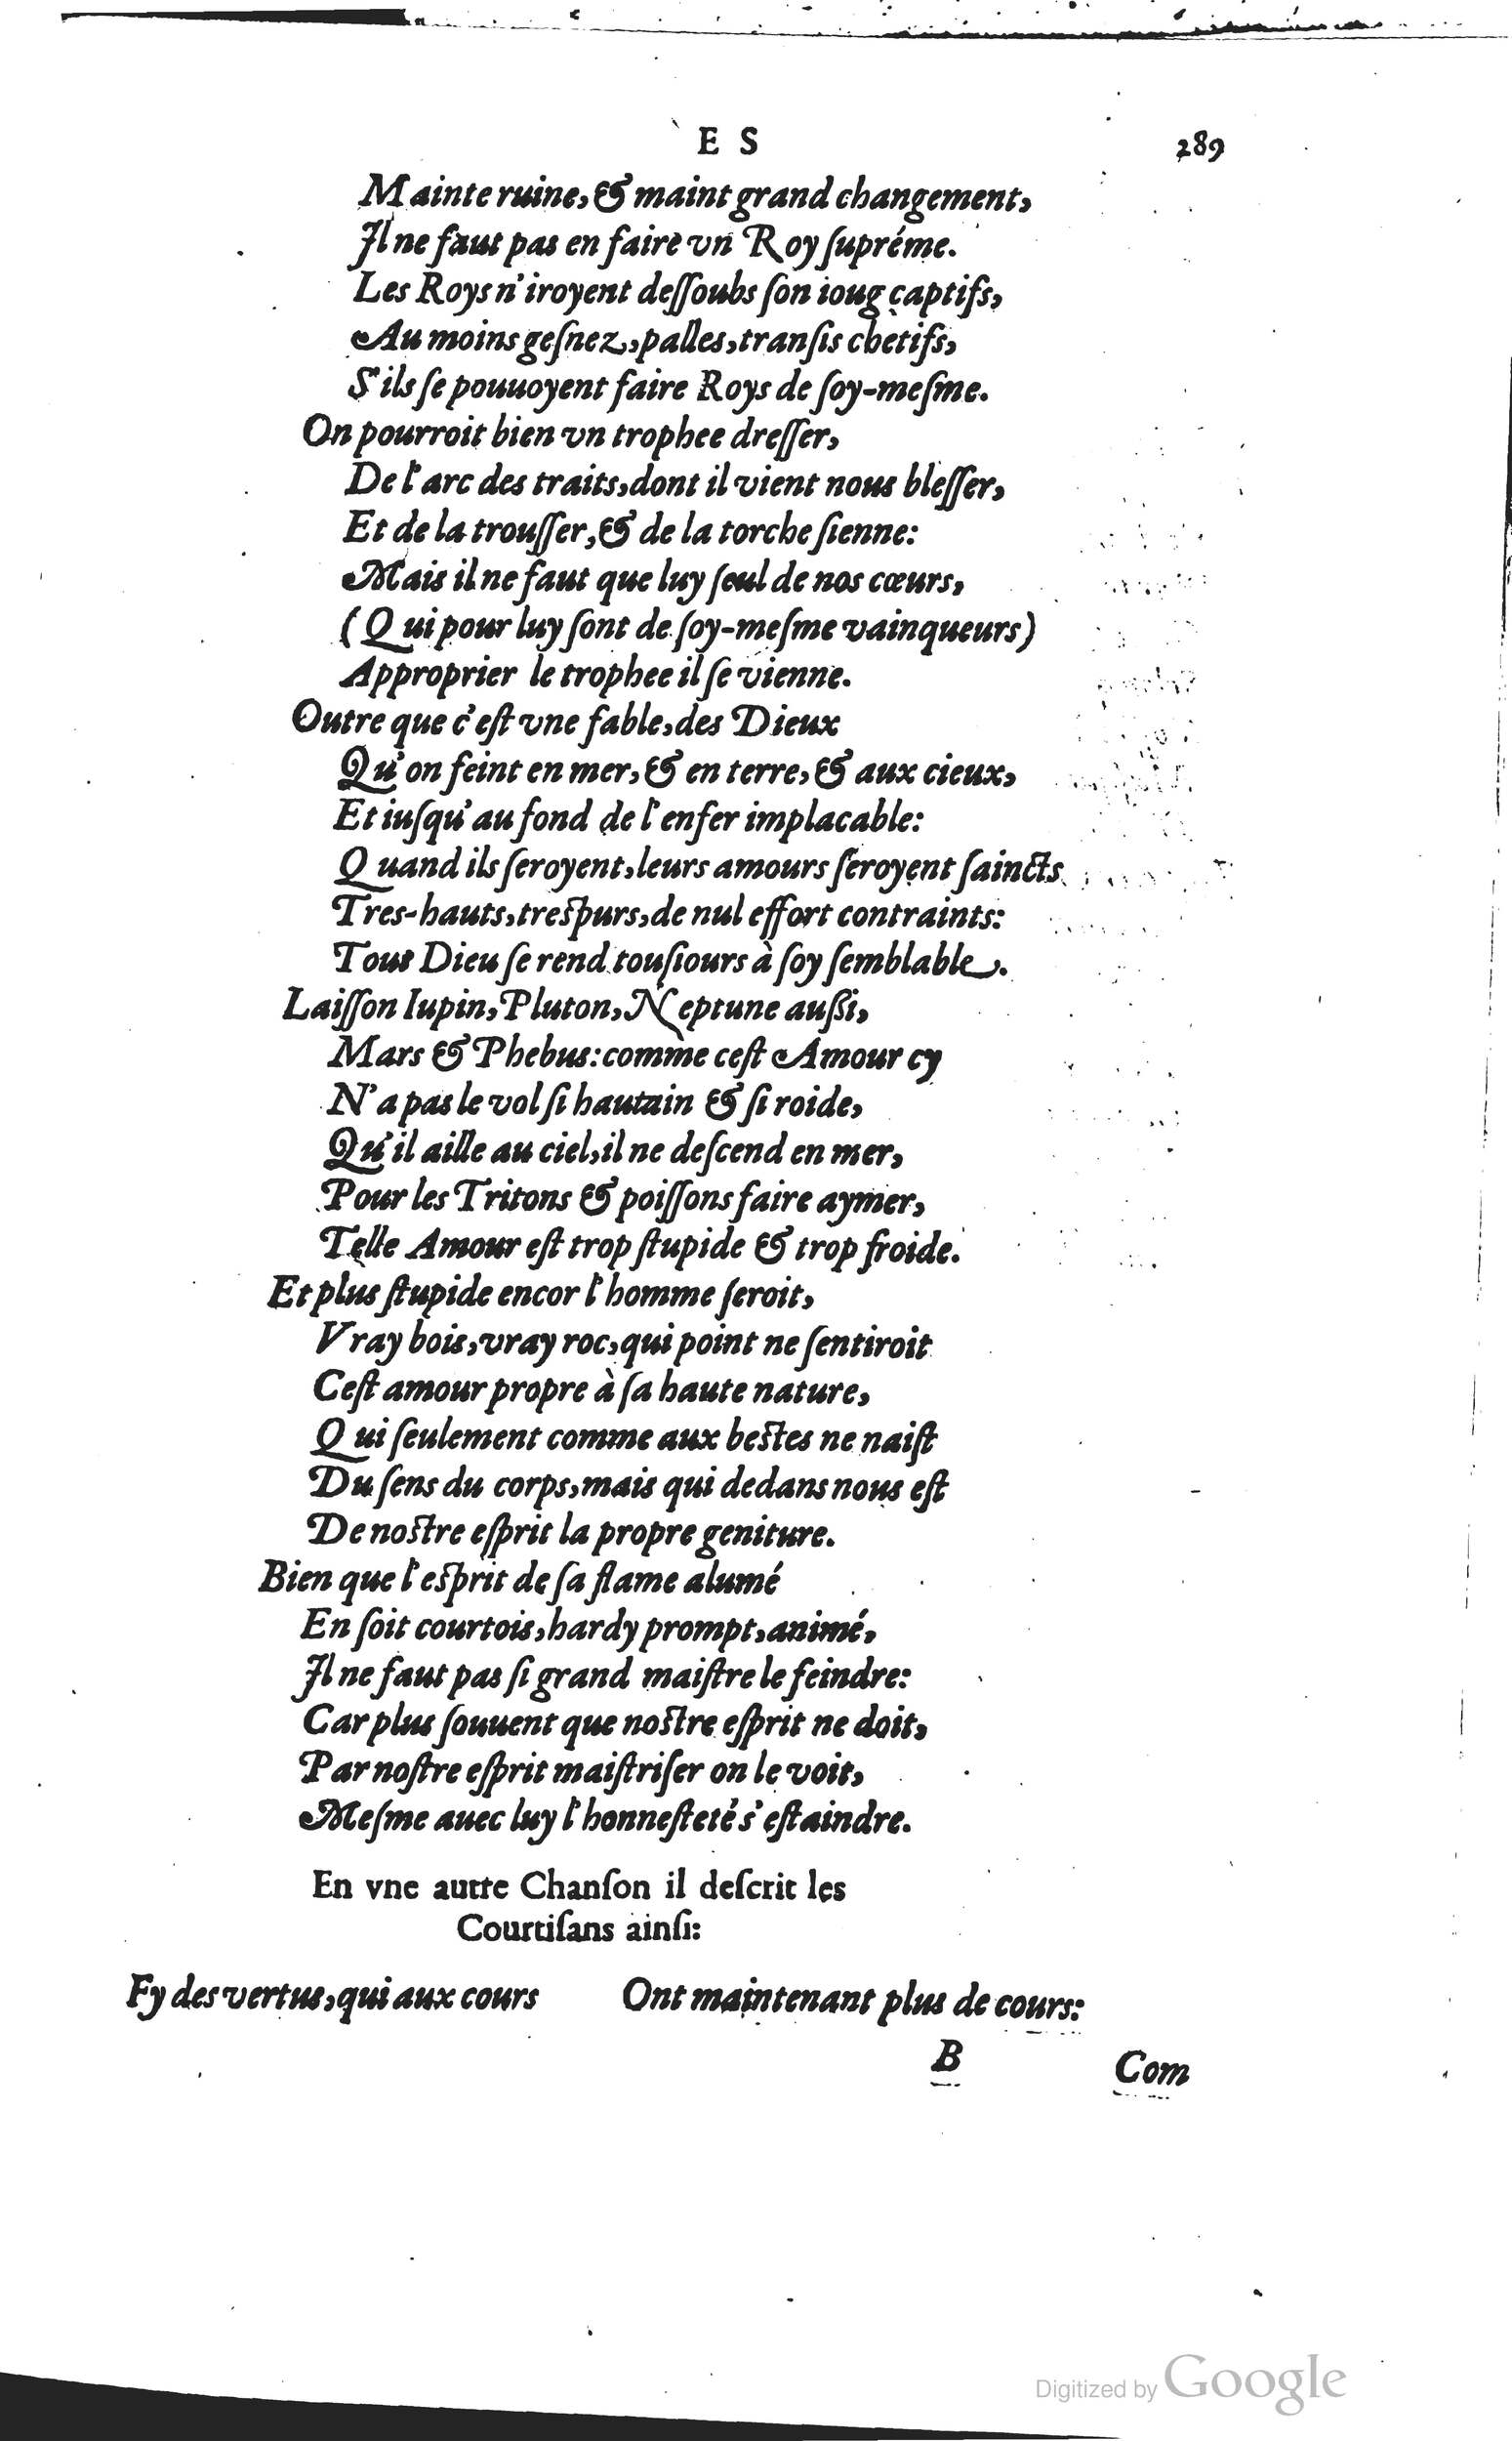 E S 289
Mainte ruine, & maint grand changement,
Il ne faut pas en faire vn Roy ſupréme.
Les Roys n'iroyent deſſoubs ſon ioug captifs,
Au moins geſnez, palles, tranſis chetifs,
S'ils ſe pouuoyent faire Roys de ſoy-meſme.
On pourroit bien vn trophee dreſſer,
De l'arc des traits, dont il vient nous bleſſer,
Et de la trouſſer, & de la torche ſienne:
Mais il ne faut que luy ſeul de nos cœurs,
(Qui pour luy ſont de ſoy-meſme vainqueurs)
Approprier le trophee il ſe vienne.
Outre que c'eſt vne fable, des Dieux
Qu'on feint en mer, & en terre, & aux cieux,
Et iuſqu'au fond de l'enfer implacable:
Quand ils ſeroyent, leurs amours ſeroyent ſaincts
Tres-hauts, treſpurs, de nul effort contraints:
Tout Dieu ſe rend touſiours à ſoy ſemblable.
Laiſſon Iupin, Pluton, Neptune auſſi,
Mars & Phebus: comme ceſt Amour cy
N'a pas le vol ſi hautain & ſi roide,
Qu'il aille au ciel, il ne deſcend en mer,
Pour les Tritons & poiſſons faire aymer,
Telle Amour eſt trop ſtupide & trop froide.
Et plus ſtupide encor l'homme ſeroit,
Vray bois, vray roc, qui point ne ſentiroit
Ceſt amour propre à ſa haute nature,
Qui ſeulement comme aux beſtes ne naiſt
Du ſens du corps, mais qui dedans nous eſt
De noſtre eſprit la propre geniture.
Bien que l'eſprit de ſa flame alumé
En ſoit courtois, hardy prompt, animé,
Il ne faut pas ſi grand maiſtre le feindre:
Car plus ſouuent que noſtre eſprit ne doit,
Par noſtre eſprit maiſtriſer on le voit,
Meſme auec luy l'honneſteté s'eſtaindre.
En vne autre Chanſon il deſcrit les
Courtiſans ainſi:
Fy des vertus, qui aux cours Ont maintenant plus de cours:
B Com
Digitized by Google